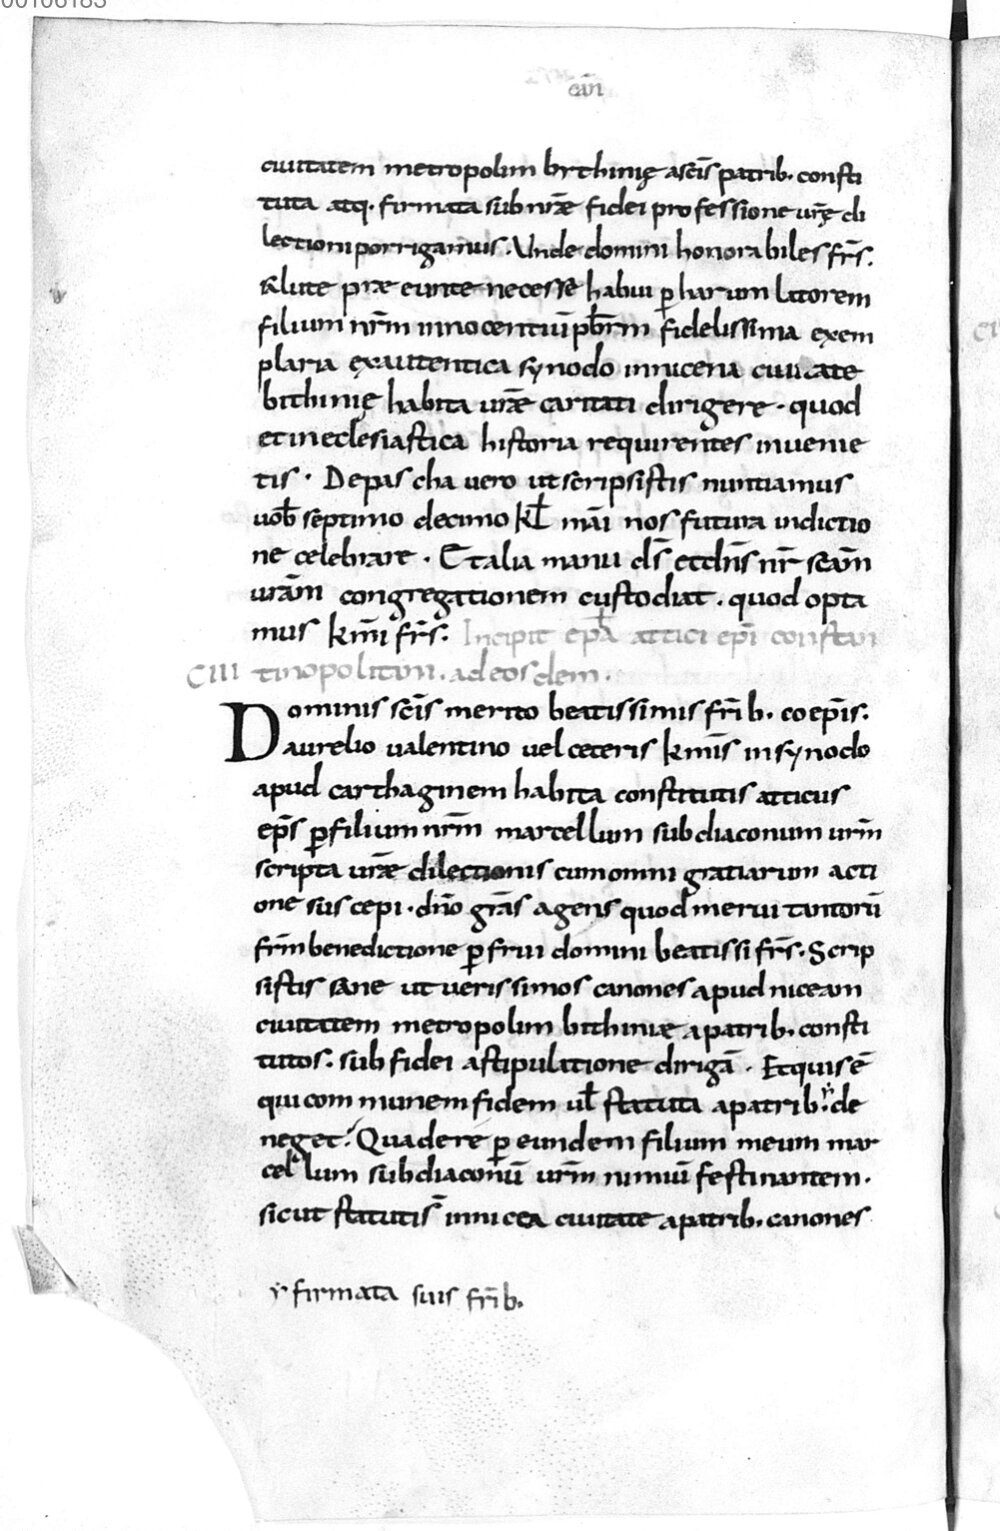 00106183
ciui
ciuitatem metropolim bythinię a sc̄is patrib. consti
tuta atq. firmata sub nr̄ae fidei professione ur̄ę di
lectioni porrigamus. Unde domini honorabiles fr̄s.
salute prae eunte necesse habui p̱ harum latorem
filium nr̄m innocentiū pb̄rm fidelissima exem
plaria ex autentica synodo in nicena ciuitate
bithinię habita ur̄ae caritati dirigere. quod
et in eclesiastica historia requirentes inuenie
tis. De pascha uero ut scripsistis nuntiamus
uob̄ septimo decimo kl̄ mā nos futura indictio
ne celebrare. Et alia manu ds̄ et dn̄s nr̄ scām
ur̄am congregationem custodiat. quod opta
mus km̄i fr̄s. Incipit ep̄la attici ep̄i constan
CIII tinopolitani. ad eosdem.
Dominis sc̄is merito beatissimis fr̄ib. coep̄is.
aurelio ualentino uel ceteris km̄is in synodo
apud carthaginem habita constitutis atticus
ep̄s p̱ filium nr̄m marcellum subdiaconum ur̄m
scripta ur̄ae dilectionis cum omni gratiarum acti
one suscepi. dn̄o grās agens quod merui tantorū
fr̄m benedictione p̱frui domini beatissi fr̄s. Scrip
sistis sane ut uerissimos canones apud niceam
ciuitatem metropolim bithiniae a patrib. consti
tutos. sub fidei astipulatione dirigā. Et quis ē
qui communem fidem ul̄ statuta a patrib. de
neget? Quadere p̱ eundem filium meum mar
cellum subdiaconū ur̄m nimiū festinantem.
sicut statuti s̄ in nicea ciuitate a patrib. canones
firmata suis fr̄ib.